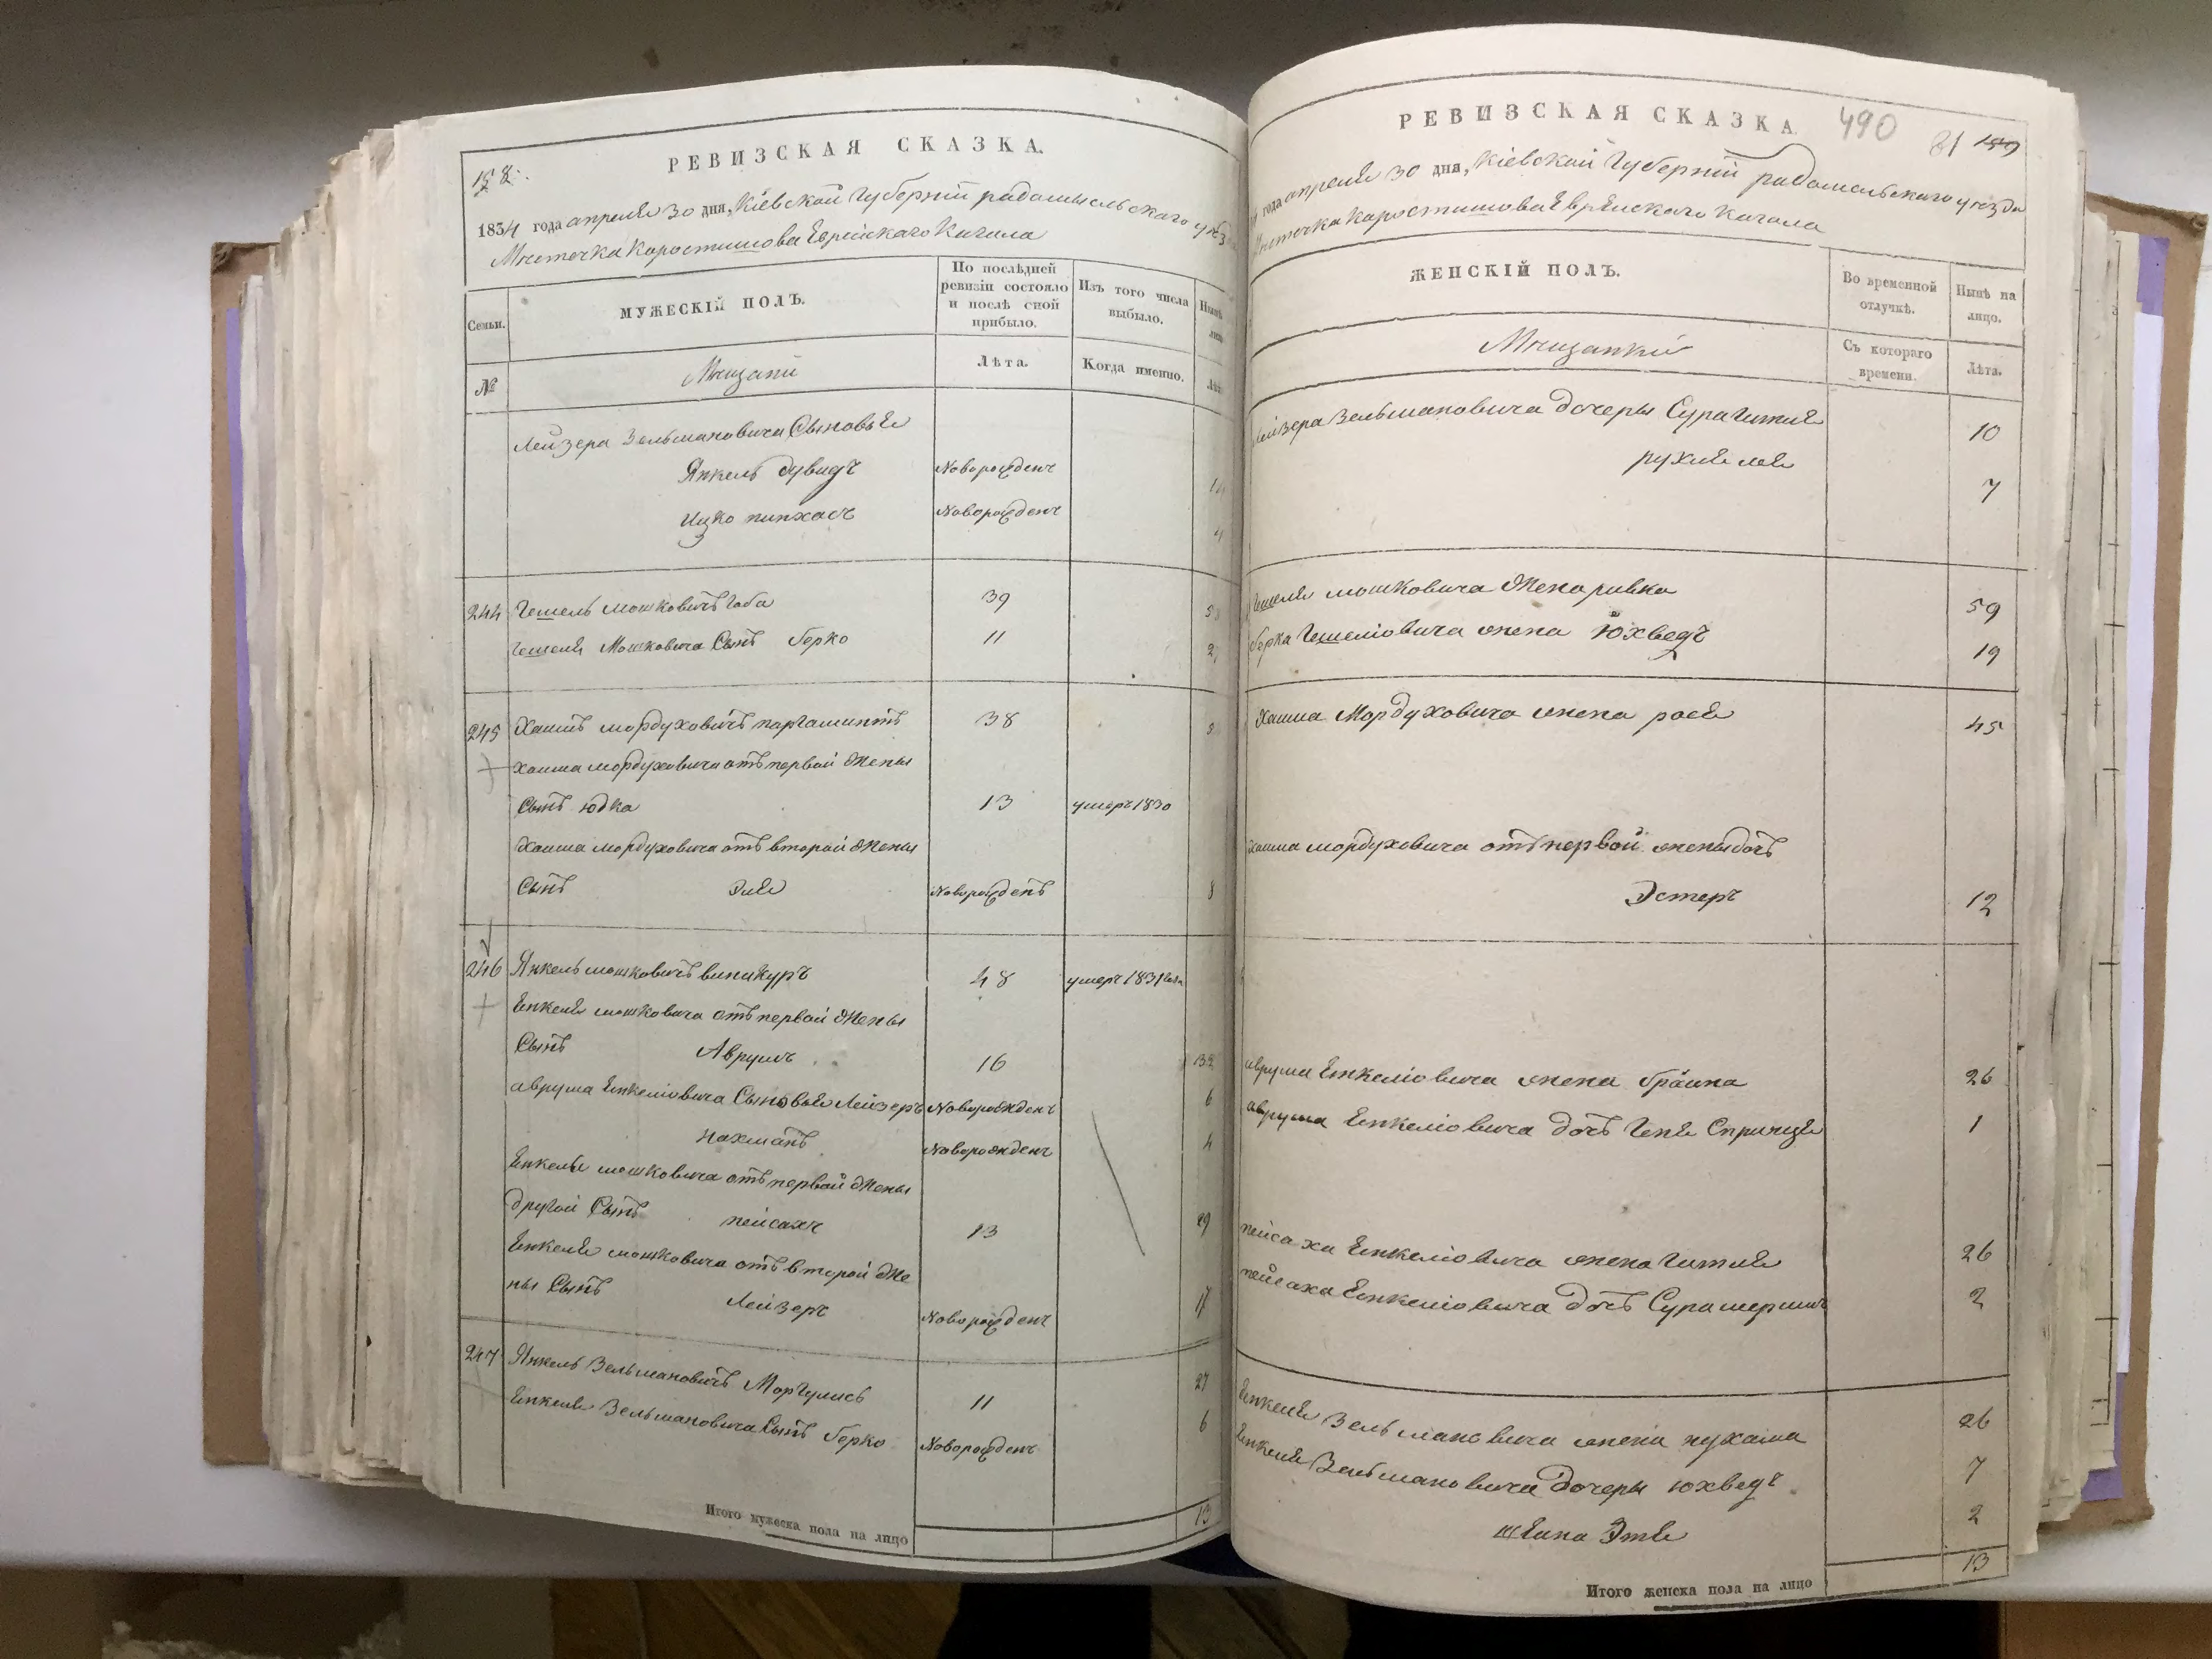 РЕВИЗСКАЯ СКАЗКА.
1834 года апреля 30 дня, Кіевской Губерніи радомысльскаго
Мѣстечка Коростишова Еврейскаго Кагала
Семьи.
МУЖЕСКІЙ ПОЛЪ.
По послѣдней ревизіи состояло и послѣ оной прибыло.
Изъ того числа выбыло.
№
Мѣщани
Лѣта.
Когда именно.
Лейзера Зельмановича Сыновья
Янкель дувидъ Новорожденъ
Ицко пинхасъ Новорожденъ 4
244 Гешель мошковичъ Гоба 39
Гешеля Мошковича Сынъ Берко 11
245 Хаимъ мордуховичъ паргаминтъ 38
хаима мордуховича отъ первой жены
Сынъ юдка 13 умеръ 1830
Хаима мордуховича отъ второй жены
Сынъ Эля Новорожденъ 8
246 Янкель мошковичъ винакуръ 48 умеръ 1831
Енкеля мошковича отъ первой жены
Сынъ Аврумъ 16
аврума Енкеліовича Сыновья Лейзеръ Новорожденъ 6
нахманъ Новорожденъ 4
Енкеля мошковича отъ первой жены
другой Сынъ пейсахъ 13 29
Енкеля мошковича отъ второй же
ны Сынъ Лейзеръ Новорожденъ 17
247 Янкель Зельмановичъ Моргулисъ 11 27
Енкеля Зельмановича Сынъ Берко Новорожденъ 6
Итого мужеска пола на лицо 13
РЕВИЗСКАЯ СКАЗКА 490 81
года апреля 30 дня, Кіевской Губерніи радомысльскаго уѣзда
Мѣстечка Коростишова Еврейскаго Кагала
ЖЕНСКІЙ ПОЛЪ.
Во временной отлучкѣ.
Нынѣ на лицо.
Мѣщанки
Съ котораго времени.
Лѣта.
Лейзера Зельмановича дочеры Сура Гитля 10
рухля лея 7
Гешеля мошковича жена ривка 59
Берка Гешеліовича жена Юхведъ 19
Хаима Мордуховича жена рося 45
хаима мордуховича отъ первой жены дочь
Эстеръ 12
аврума Енкеліовича жена браина 26
аврума Енкеліовича дочь Геня Спринця 1
пейсаха Енкеліовича жена Гитля 26
пейсаха Енкеліовича дочь Сура 2
Енкеля Зельмановича жена нухама 26
Енкеля Зельмановича дочеры юхведъ 7
шеина Этя 2
Итого женска пола на лицо 13